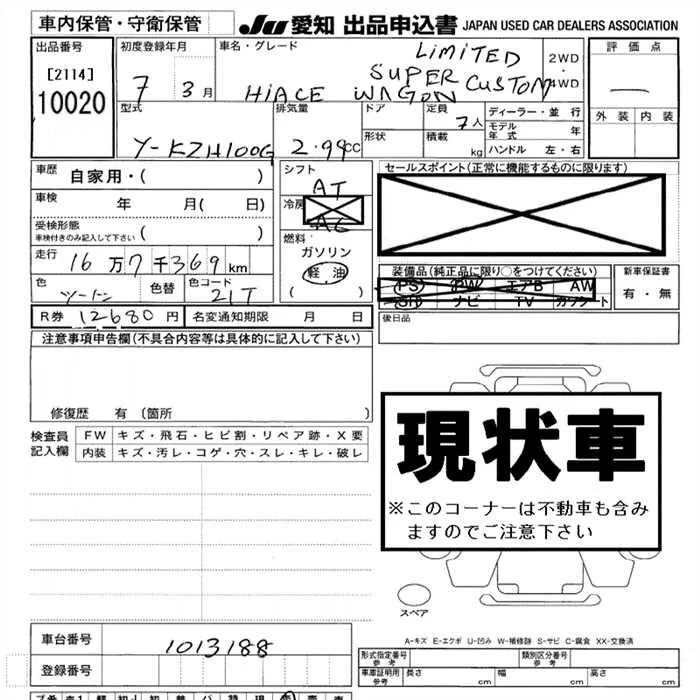 車内保管・守衛保管 JU 愛知 出品申込書 JAPAN USED CAR DEALERS ASSOCIATION
出品番号 初度登録年月 車名・グレード 評価点
[2114] LIMITED 2WD
10020 7 3月 HIACE SUPER CUSTOM ・
WAGON 4WD
型式 排気量 ドア 定員 ディーラー・並行 外装 内装
7人 モデル年式 年
Y-KZH100G 2.99CC 形状 積載 kg ハンドル 左・右
車歴 自家用・( ) シフト セールスポイント(正常に機能するものに限ります)
AT
車検 年 月( 日) 冷房 AC
受検形態
車検付きのみ記入して下さい 燃料
ガソリン
走行 16万7千369km 軽油 装備品(純正品に限り○をつけてください) 新車保証書
色 ツートン 色替 色コード 21T ( ) PS PW エアB AW 有・無
SR ナビ TV カワシート
R券 12680円 名変通知期限 月 日 後日品
注意事項申告欄(不具合内容等は具体的に記入して下さい)
修復歴 有(箇所 )
検査員 FW キズ・飛石・ヒビ割・リペア跡・X要
記入欄 内装 キズ・汚レ・コゲ・穴・スレ・キレ・破レ
現状車
※このコーナーは不動車も含み
ますのでご注意下さい
スペア
A-キズ E-エクボ U-凹み W-補修跡 S-サビ C-腐食 XX-交換済
車台番号 1013188
登録番号
形式指定番号 参考 類別区分番号 参考
車庫証明用 参考 長さ cm 幅 cm 高さ cm